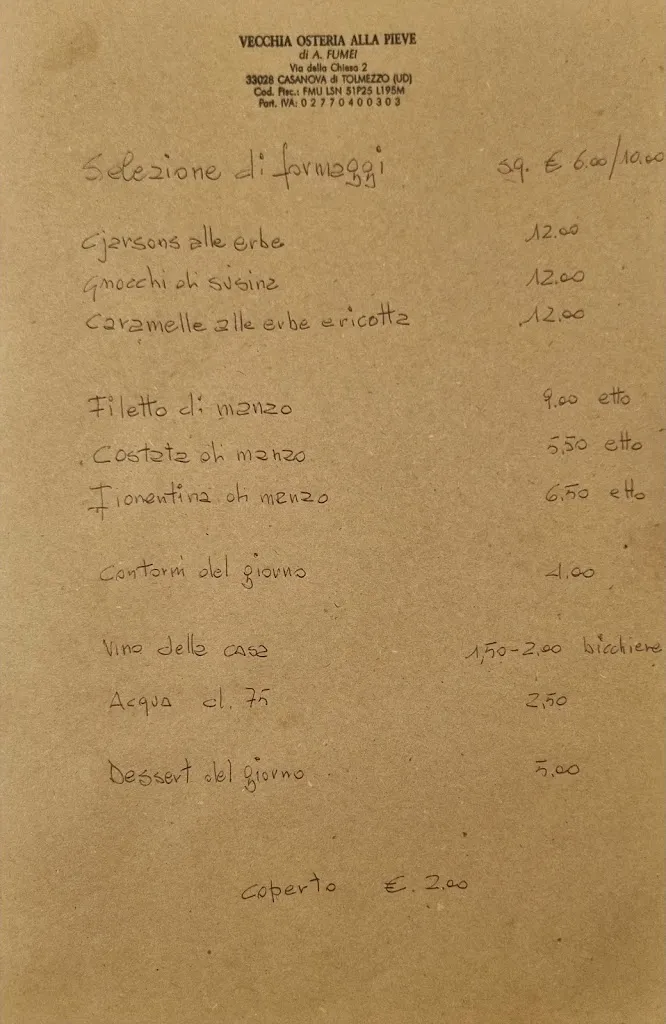 VECCHIA OSTERIA ALLA PIEVE
di A. FUMEI
Via della Chiesa 2
33028 CASANOVA di TOLMEZZO (UD)
Cod. Fisc.: FMU LSN 51P25 L195M
Part. IVA: 0 2 7 7 0 4 0 0 3 0 3
Selezione di formaggi sg. € 6.00/10.00
Cjarsons alle erbe 12.00
Gnocchi di susina 12.00
Caramelle alle erbe e ricotta 12.00
Filetto di manzo 9.00 etto
Costata di manzo 5,50 etto
Fiorentina di manzo 6,50 etto
Contorni del giorno 4.00
Vino della casa 1,50-2,00 bicchiere
Acqua cl. 75 2,50
Dessert del giorno 5.00
coperto €. 2.00